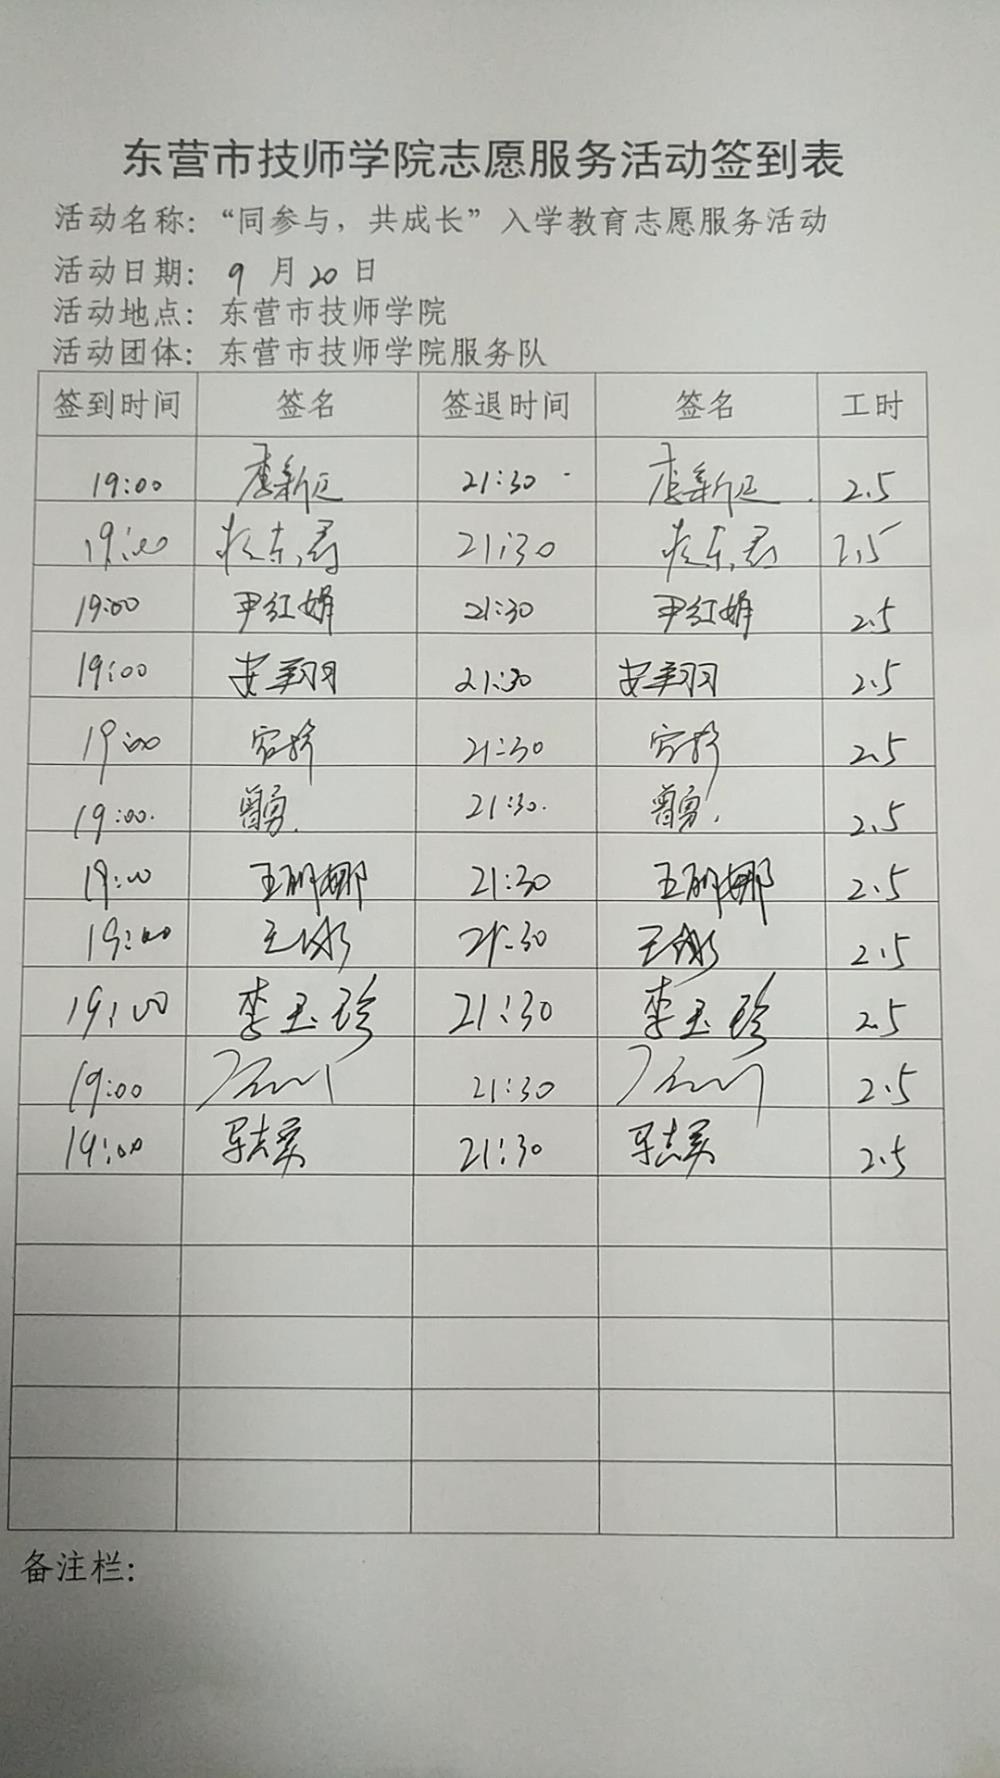 东营市技师学院志愿服务活动签到表
活动名称：“同参与，共成长”入学教育志愿服务活动
活动日期： 9 月 20 日
活动地点： 东营市技师学院
活动团体： 东营市技师学院服务队
签到时间 签名 签退时间 签名 工时
19:00 21:30 2.5
19:00 21:30 2.5
19:00 尹红娟 21:30 尹红娟 2.5
19:00 安翔羽 21:30 安翔羽 2.5
19:00 21:30 2.5
19:00 曾勇 21:30 曾勇 2.5
19:00 王丽娜 21:30 王丽娜 2.5
19:00 21:30 2.5
19:00 李玉珍 21:30 李玉珍 2.5
19:00 21:30 2.5
19:00 21:30 2.5
备注栏：